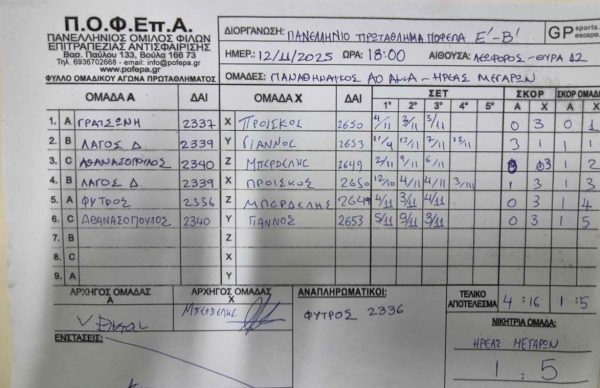 Π.Ο.Φ.ΕΠ.Α.
ΠΑΝΕΛΛΗΝΙΟΣ ΟΜΙΛΟΣ ΦΙΛΩΝ
ΕΠΙΤΡΑΠΕΖΙΑΣ ΑΝΤΙΣΦΑΙΡΙΣΗΣ
Βασ. Παύλου 133, Βούλα 166 73
Τηλ. 6936702668 - email: info@pofepa.gr
www.pofepa.gr
ΦΥΛΛΟ ΟΜΑΔΙΚΟΥ ΑΓΩΝΑ ΠΡΩΤΑΘΛΗΜΑΤΟΣ
ΔΙΟΡΓΑΝΩΣΗ: ΠΑΝΕΛΛΗΝΙΟ ΠΡΩΤΑΘΛΗΜΑ ΠΟΦΕΠΑ Ε'-Β'
GP sports. escape.
ΗΜΕΡ.: 12/11/2025 ΩΡΑ: 18:00 ΑΙΘΟΥΣΑ: ΛΕΩΦΟΡΟΣ-ΘΥΡΑ 12
ΟΜΑΔΕΣ: ΠΑΝΑΘΗΝΑΙΚΟΣ ΑΟ ΑμεΑ - ΗΡΕΑΣ ΜΕΓΑΡΩΝ
ΟΜΑΔΑ Α ΔΑΙ ΟΜΑΔΑ Χ ΔΑΙ ΣΕΤ ΣΚΟΡ ΣΚΟΡ ΟΜΑΔ
1° 2° 3° 4° 5° Α Χ Α Χ
1. Α ΓΡΑΤΣΩΝΗ 2337 Χ ΠΡΟΙΣΚΟΣ 2650 4/11 3/11 3/11 0 3 0 1
2. Β ΛΑΓΟΣ Δ. 2339 Υ ΓΙΑΝΝΟΣ 2653 11/4 13/11 7/11 13/11 3 1 1 1
3. C ΑΘΑΝΑΣΟΠΟΥΛΟΣ 2340 Ζ ΜΠΕΡΔΕΛΗΣ 2649 2/11 9/11 6/11 0 3 1 2
4. Β ΛΑΓΟΣ Δ. 2339 Χ ΠΡΟΙΣΚΟΣ 2650 12/10 4/11 4/11 3/11 1 3 1 3
5. Α ΦΥΤΡΟΣ 2336 Ζ ΜΠΕΡΔΕΛΗΣ 2649 4/11 3/11 4/11 0 3 1 4
6. C ΑΘΑΝΑΣΟΠΟΥΛΟΣ 2340 Υ ΓΙΑΝΝΟΣ 2653 5/11 9/11 3/11 0 3 1 5
7. Β Ζ
8. C Χ
9. Α Υ
ΑΡΧΗΓΟΣ ΟΜΑΔΑΣ Α
ΑΡΧΗΓΟΣ ΟΜΑΔΑΣ Χ
ΜΠΕΡΔΕΛΗΣ
ΑΝΑΠΛΗΡΩΜΑΤΙΚΟΙ:
ΦΥΤΡΟΣ 2336
ΤΕΛΙΚΟ ΑΠΟΤΕΛΕΣΜΑ 4:16 1:5
ΝΙΚΗΤΡΙΑ ΟΜΑΔΑ:
ΗΡΕΑΣ ΜΕΓΑΡΩΝ
1:5
ΕΝΣΤΑΣΕΙΣ: